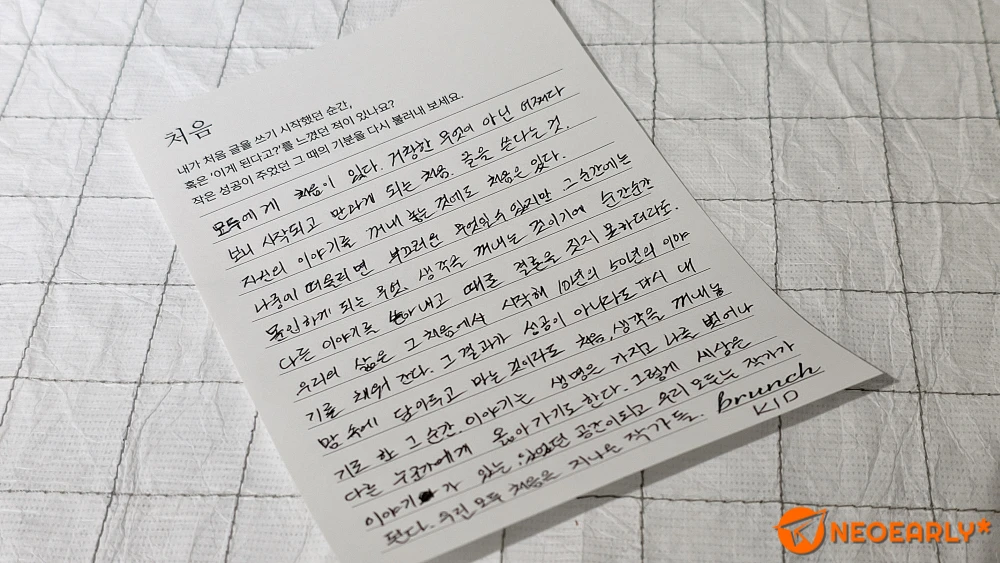 처음
내가 처음 글을 쓰기 시작했던 순간,
혹은 '이게 된다고?'를 느꼈던 적이 있나요?
작은 성공이 주었던 그 때의 기분을 다시 불러내 보세요.
모두에게 처음이 있다. 거창한 무엇이 아닌 어쩌다
보니 시작되고 만나게 되는 처음. 글을 쓴다는 것.
자신의 이야기를 꺼내 놓는 것에도 처음은 있다.
나중에 떠올리면 부끄러운 무엇일 수 있지만 그 순간에는
몰입하게 되는 무엇. 생각을 꺼내는 것이기에 순간순간
다른 이야기를 쏟아내고 때로 결론을 짓지 못하더라도.
우리의 삶은 그 처음에서 시작해 10년의 50년의 이야
기를 채워 간다. 그 결과가 성공이 아니라도 다시 내
맘 속에 담아두고 마는 것이라도 처음, 생각을 꺼내놓
기로 한 그 순간. 이야기는 생명은 가지고 나를 벗어나
다른 누군가에게 옮아가기도 한다. 그렇게 세상은
이야기가 있는 공간이되고 우리 모두는 작가가
된다. 우린 모두 처음은 지나온 작가들.
brunch
KID
NEOEARLY*